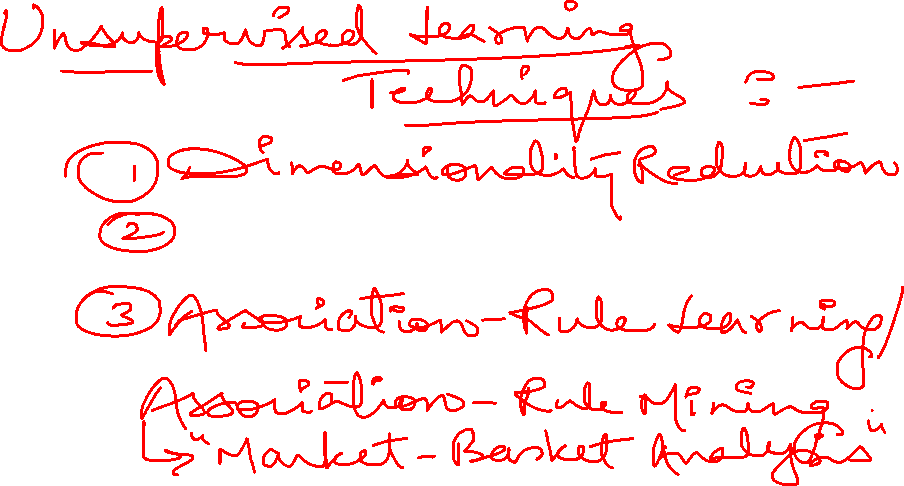 Unsupervised Learning
Techniques :-
① Dimensionality Reduction
②
③ Association-Rule Learning/
Association-Rule Mining
↳ "Market-Basket Analysis"